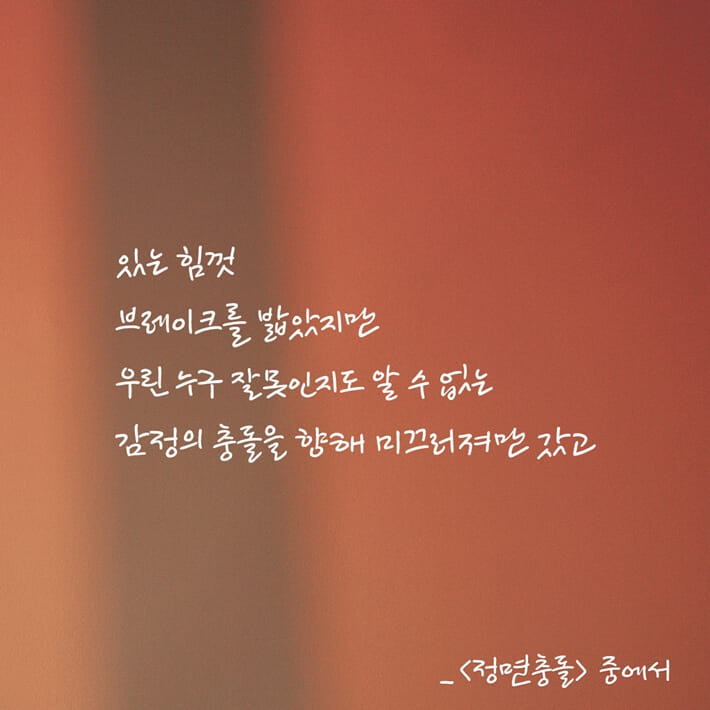 있는 힘껏
브레이크를 밟았지만
우린 누구 잘못인지도 알 수 없는
감정의 충돌을 향해 미끄러져만 갔고
_<정면충돌> 중에서